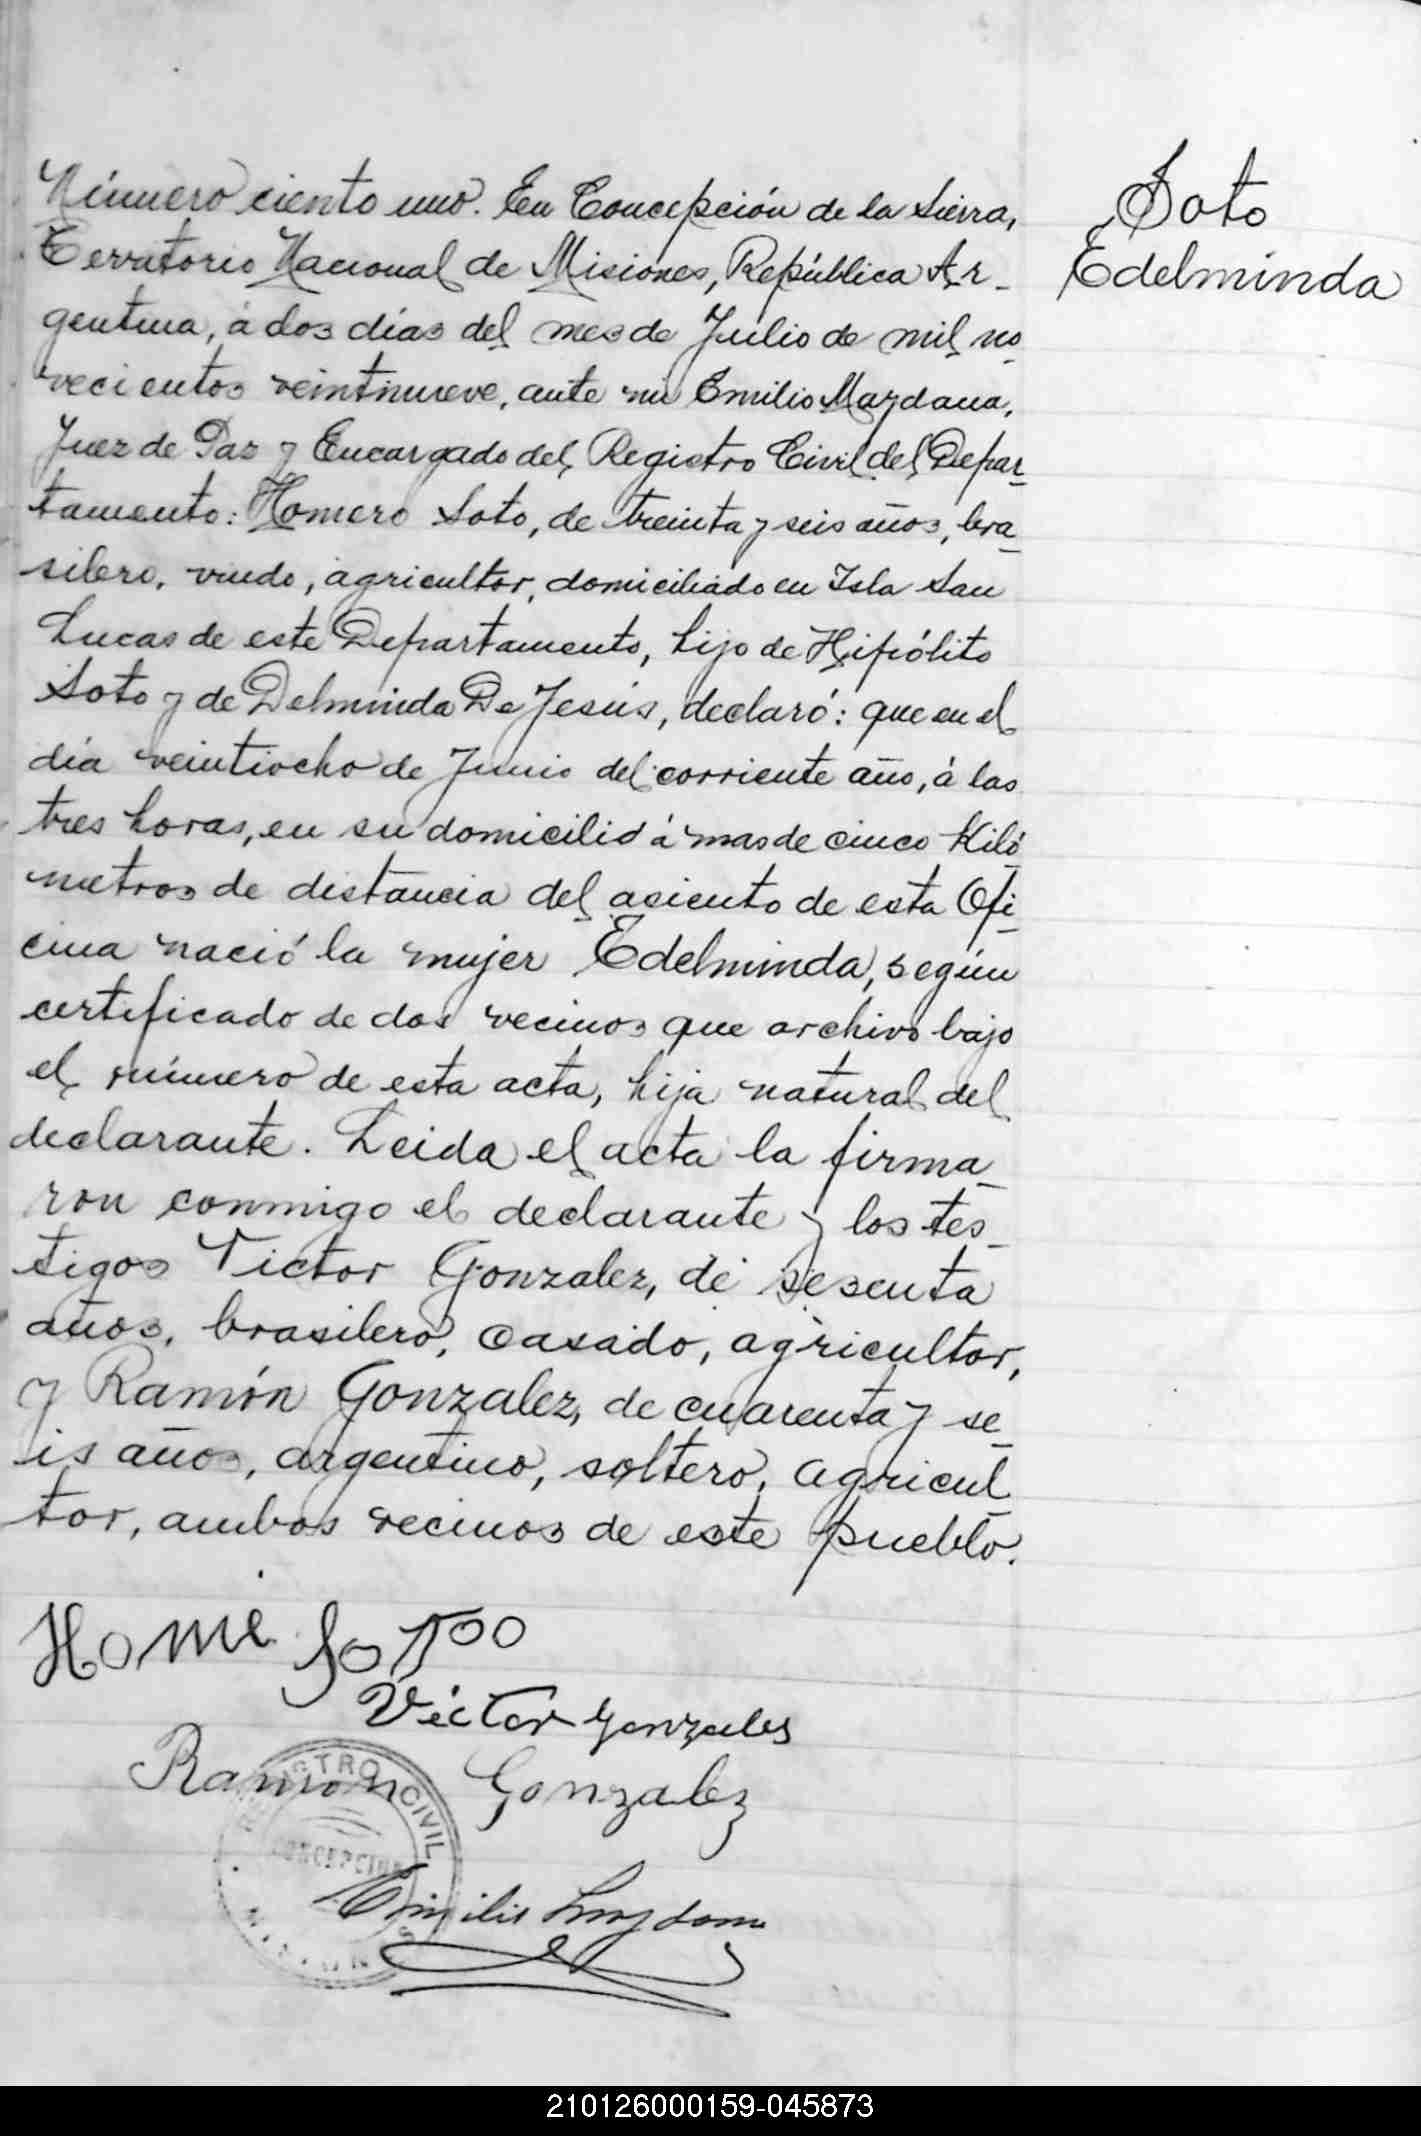 Número ciento uno. En Concepción de la Sierra,
Territorio Nacional de Misiones, República Ar-
gentina, á dos días del mes de Julio de mil no
vecientos veintinueve, ante mi Emilio Mazdana,
Juez de Paz y Encargado del Registro Civil del Depar
tamento: Homero Soto, de treinta y seis años, bra
silero, viudo, agricultor, domiciliado en Isla San
Lucas de este Departamento, hijo de Hipólito
Soto y de Delminda De Jesús, declaró: que en el
día veintiocho de Junio del corriente año, á las
tres horas, en su domicilio á mas de cinco Kiló
metros de distancia del asiento de esta Ofi
cina nació la mujer Edelminda, según
certificado de dos vecinos que archivo bajo
el número de esta acta, hija natural del
declarante. Leida el acta la firma
ron conmigo el declarante y los tes
tigos Victor Gonzalez, de sesenta
años, brasilero, casado, agricultor,
y Ramón Gonzalez, de cuarenta y se
is años, argentino, soltero, agricul
tor, ambos vecinos de este pueblo.
Soto
Edelminda
Home Sotoo
Victor Gonzales
Ramon Gonzalez
REGISTRO CIVIL
CONCEPCION
MISIONES
Emilio
210126000159-045873